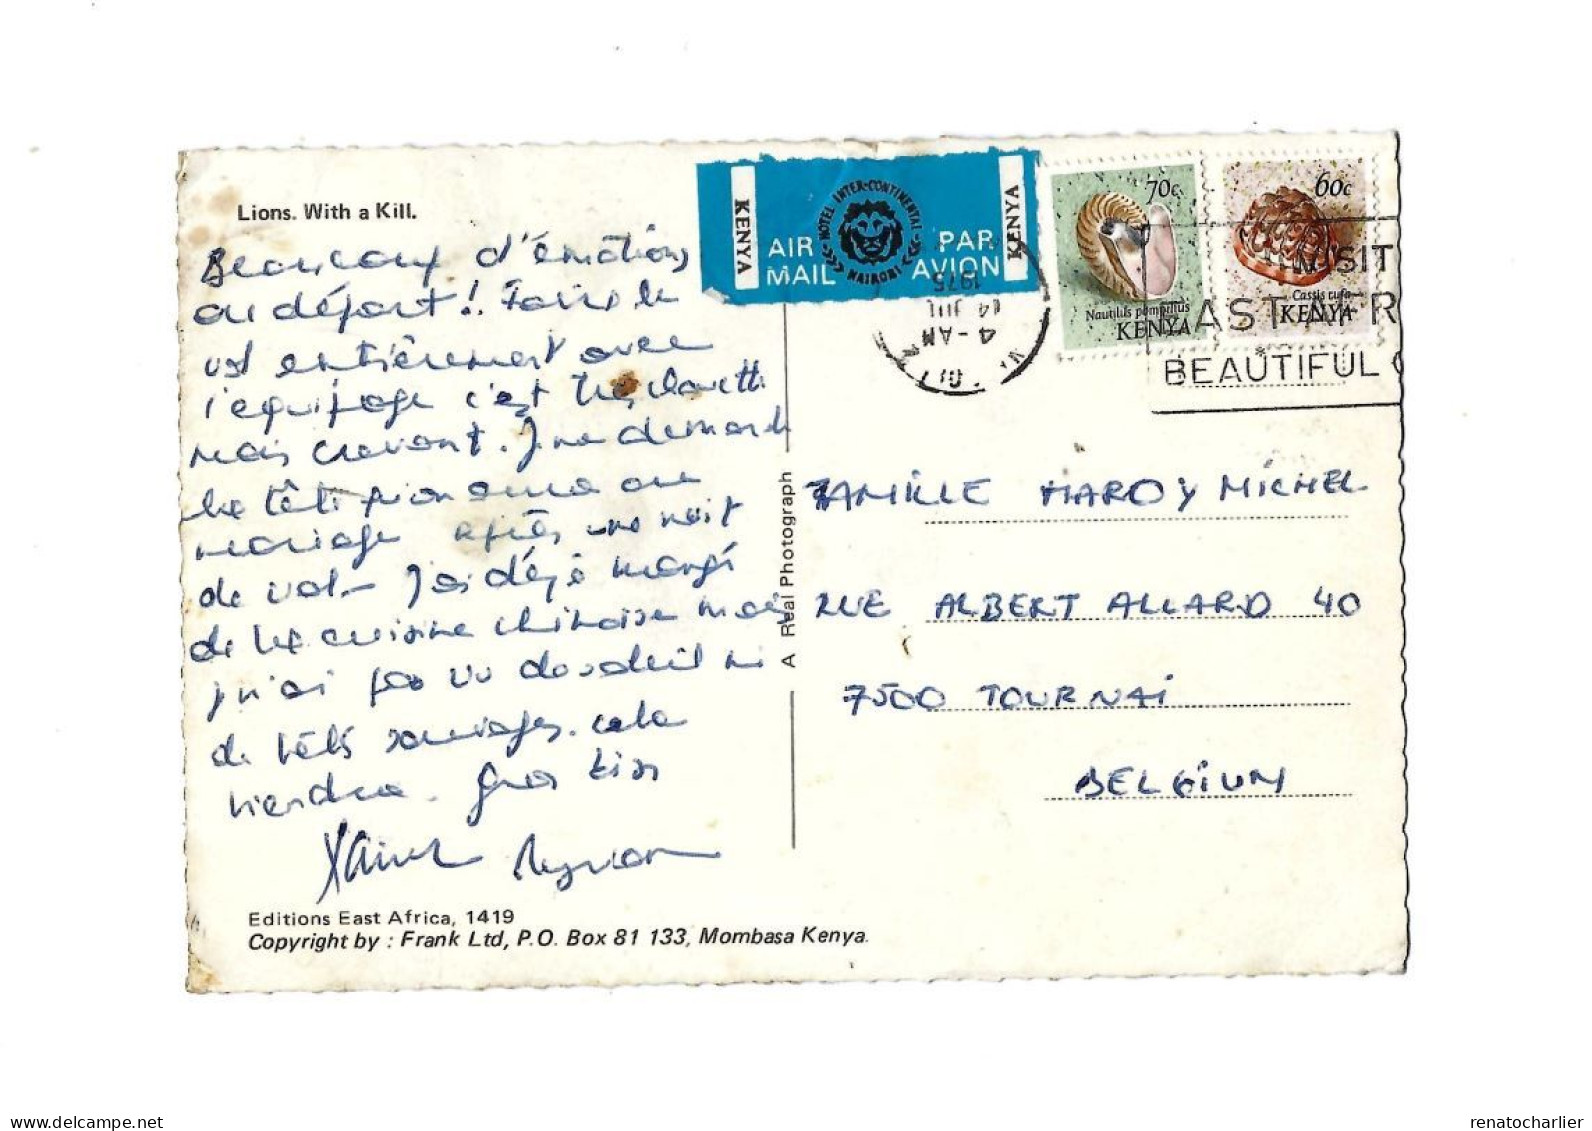 Lions. With a Kill.
Beaucoup d'émotions
au départ! Faire le
vol entièrement avec
l'équipage c'est très chouette
mais crevant. J me demande
la tête qu'on aura au
mariage après une nuit
de vol - J'ai déjà mangé
de la cuisine chinoise mais
j'n'ai pas vu de soleil ni
de bêtes sauvages. cela
viendra. Gros bisn
Xavier
Editions East Africa, 1419
Copyright by : Frank Ltd, P.O. Box 81 133, Mombasa Kenya.
A Real Photograph
KENYA
AIR MAIL
HOTEL INTER-CONTINENTAL
NAIROBI
PAR AVION
KENYA
4 - AM
14 JUL
1975
70c
Nautilus pompilius
KENYA
60c
Cassis rufa
KENYA
VISIT
EAST AFR
BEAUTIFUL
FAMILLE MAROY MICHEL
RUE ALBERT ALLARD 40
7500 TOURNAI
BELGIUM
renatocharlier